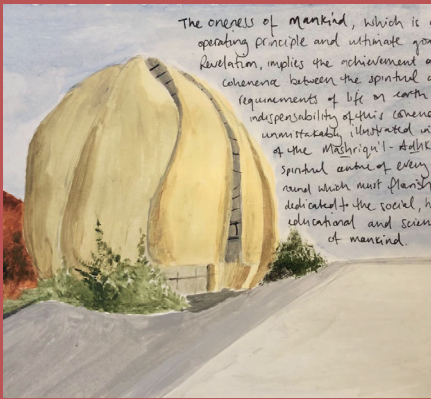 The oneness of mankind, which is
operating principle and ultimate
Revelation, implies the achievement
coherence between the spiritual
requirements of life on earth
indispensability of this
unmistakably illustrated
of the Mashriqu'l-
spiritual centre of every
round which must flourish
dedicated to the social,
educational and
of mankind.